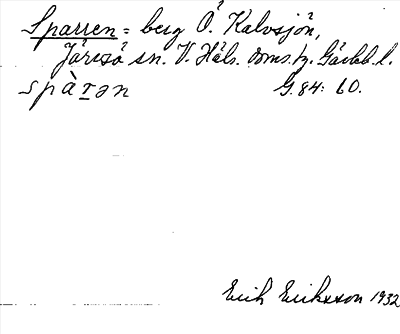 Sparren = berg Ö. Kalvsjön,
Järvsö sn. V. Häls. doms.g. Gävleb. l.
spàrən G. 84: 60.
Erik Eriksson 1932